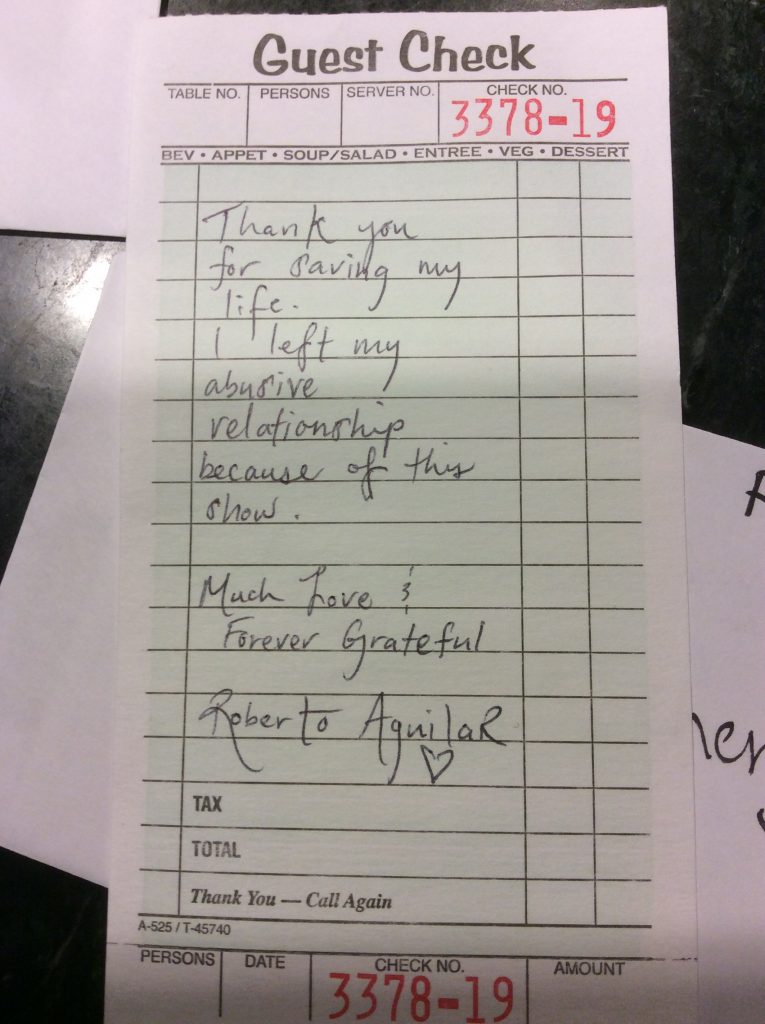 Guest Check
TABLE NO. PERSONS SERVER NO. CHECK NO.
3378-19
BEV • APPET • SOUP/SALAD • ENTREE • VEG • DESSERT
Thank you
for saving my
life.
I left my
abusive
relationship
because of this
show.
Much Love &
Forever Grateful
Roberto AguilaR
TAX
TOTAL
Thank You — Call Again
A-525 / T-45740
PERSONS DATE CHECK NO. AMOUNT
3378-19